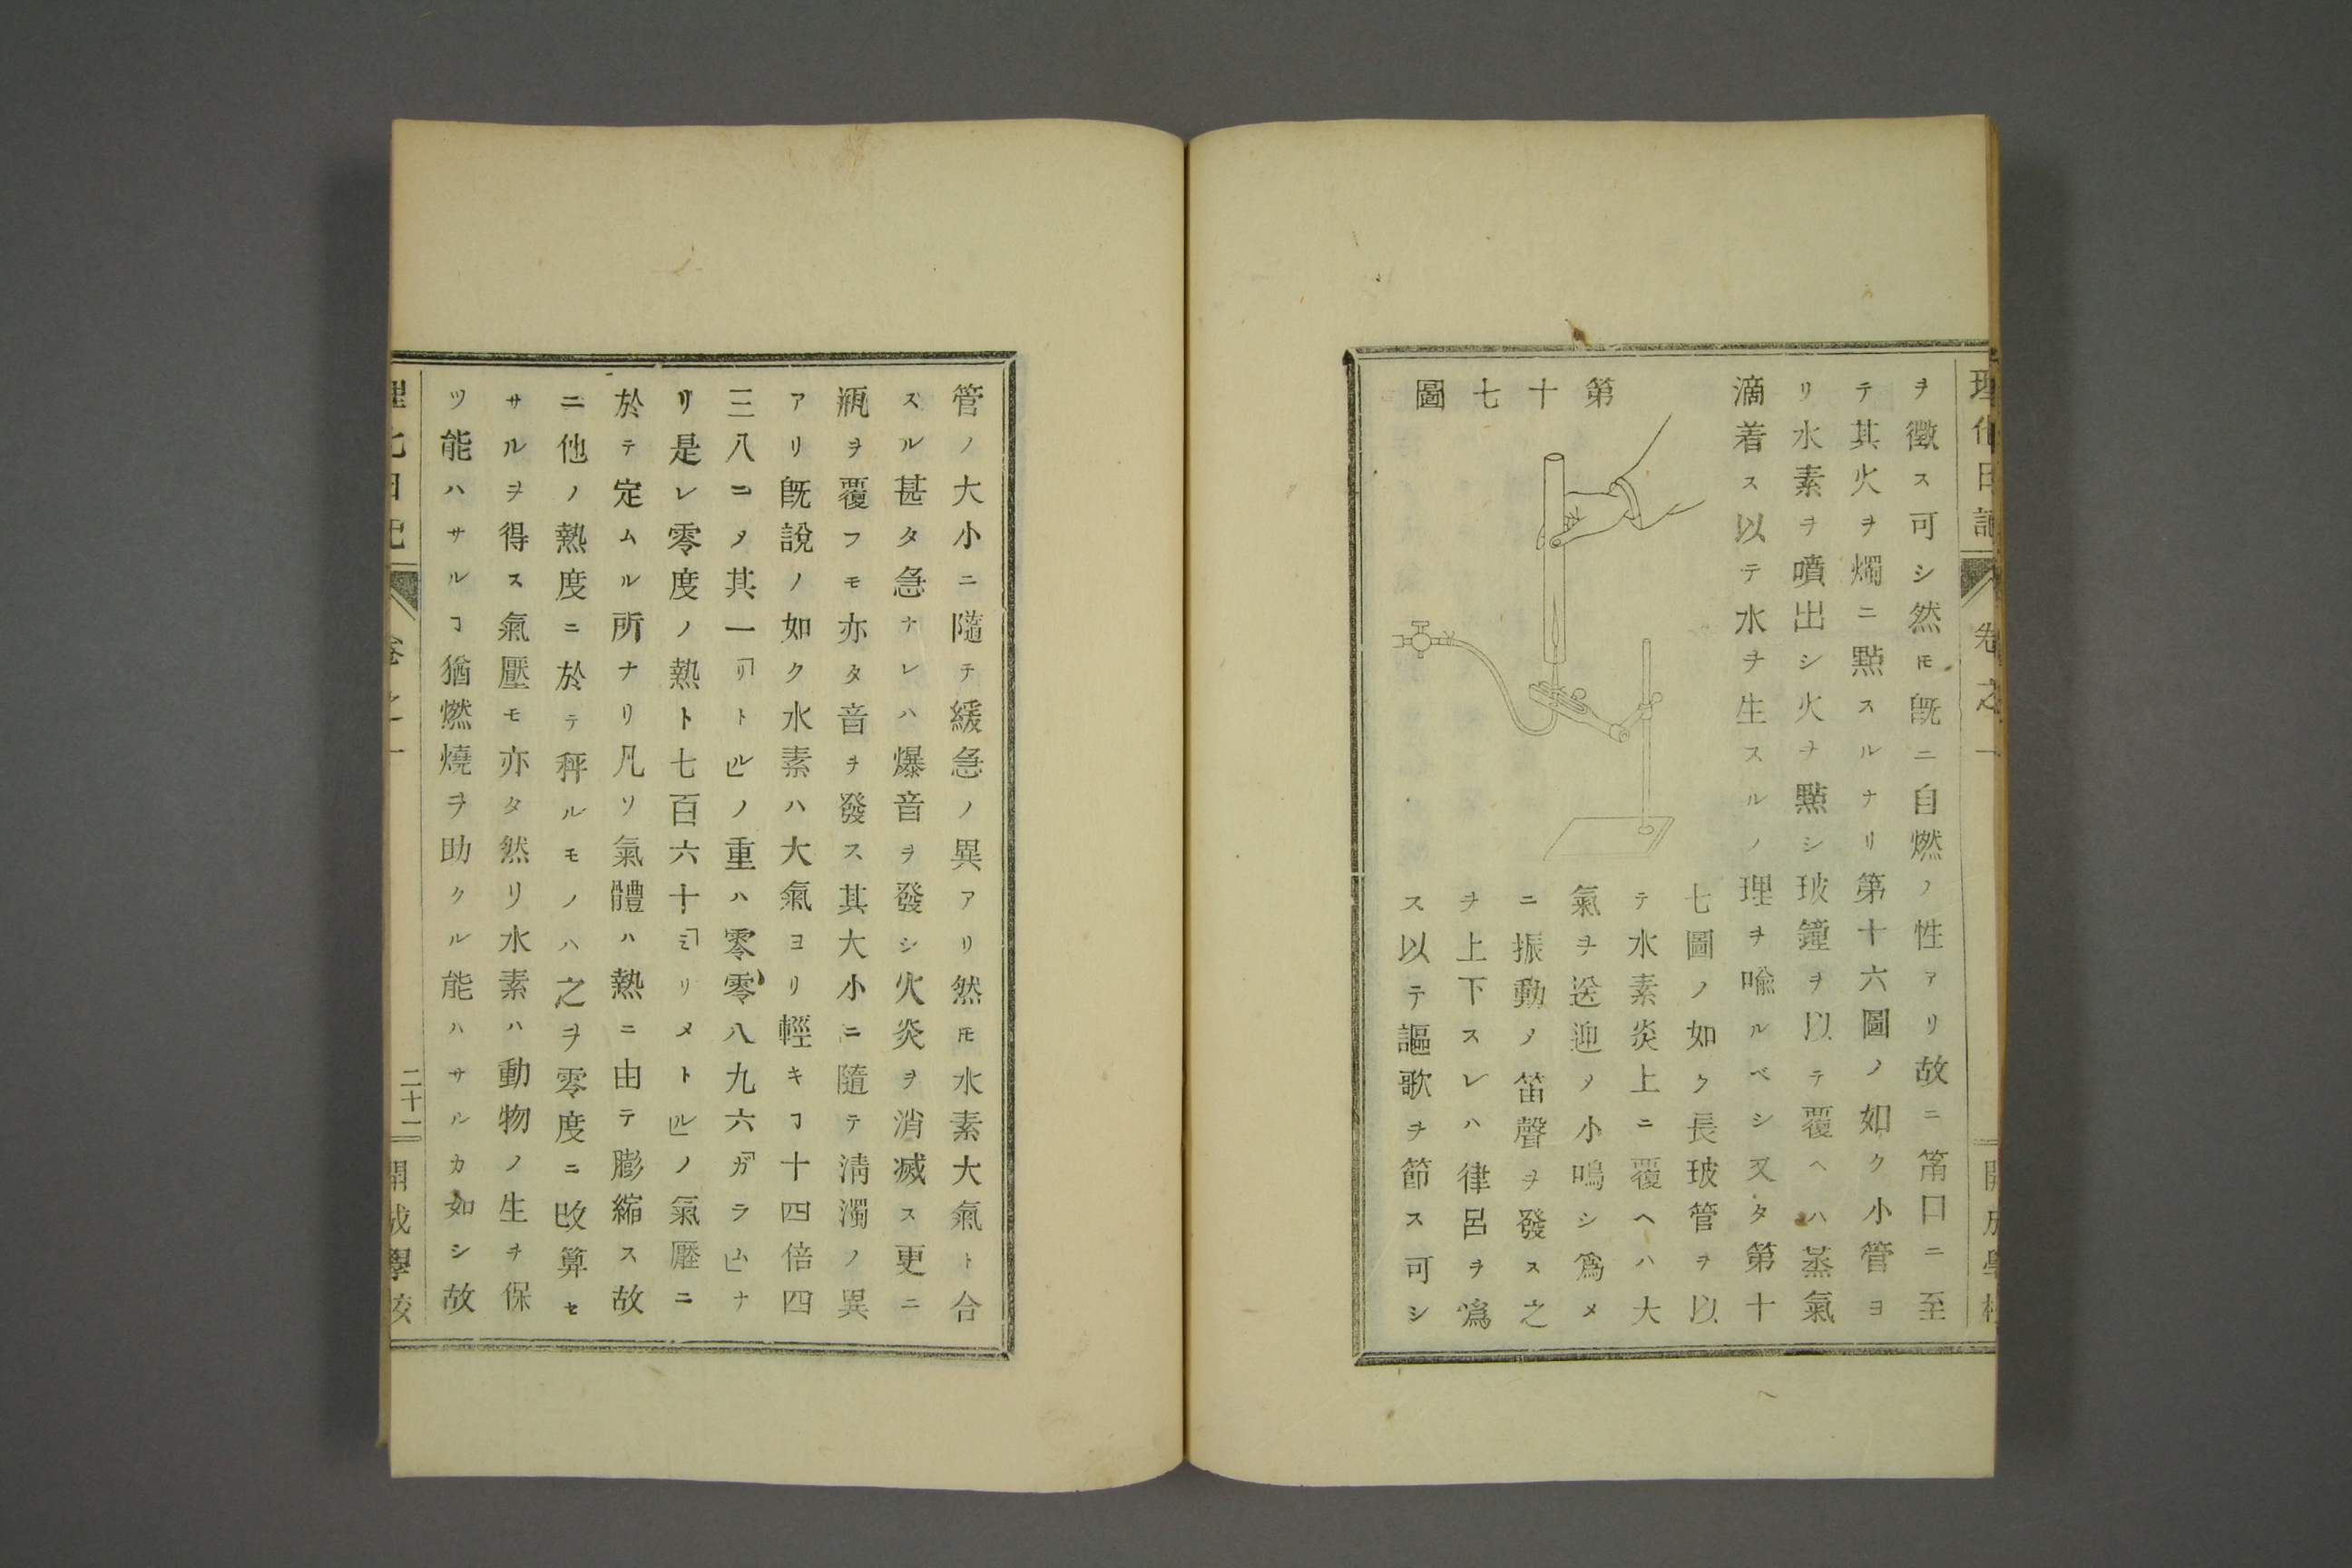 ヲ徵ス可シ然𪜈既ニ自燃ノ性アリ故ニ筩口ニ至
テ其火ヲ燭ニ點スルナリ第十六圖ノ如ク小管ヨ
リ水素ヲ噴出シ火ヲ點シ玻鐘ヲ以テ覆ヘハ蒸氣
滴着ス以テ水ヲ生スルノ理ヲ喩ルベシ又タ第十
七圖ノ如ク長玻管ヲ以
テ水素炎上ニ覆ヘハ大
氣ヲ送迎ノ小鳴シ爲メ
ニ振動ノ笛聲ヲ發ス之
ヲ上下スレハ律呂ヲ爲
ス以テ謳歌ヲ節ス可シ
第十七圖
管ノ大小ニ隨テ緩急ノ異アリ然𪜈水素大氣ト合
スル甚タ急ナレハ爆音ヲ發シ火炎ヲ消滅ス更ニ
瓶ヲ覆フモ亦タ音ヲ發ス其大小ニ隨テ淸濁ノ異
アリ既說ノ如ク水素ハ大氣ヨリ輕キヿ十四倍四
三八ニノ其一「リトル」ノ重ハ零零八九六「ガラム」ナ
リ是レ零度ノ熱ト七百六十「ミリメトル」ノ氣壓ニ
於テ定ムル所ナリ凡ソ氣體ハ熱ニ由テ膨縮ス故
ニ他ノ熱度ニ於テ秤ルモノハ之ヲ零度ニ改算セ
サルヲ得ス氣壓モ亦タ然リ水素ハ動物ノ生ヲ保
ツ能ハサルヿ猶燃燒ヲ助クル能ハサルカ如シ故
二十二